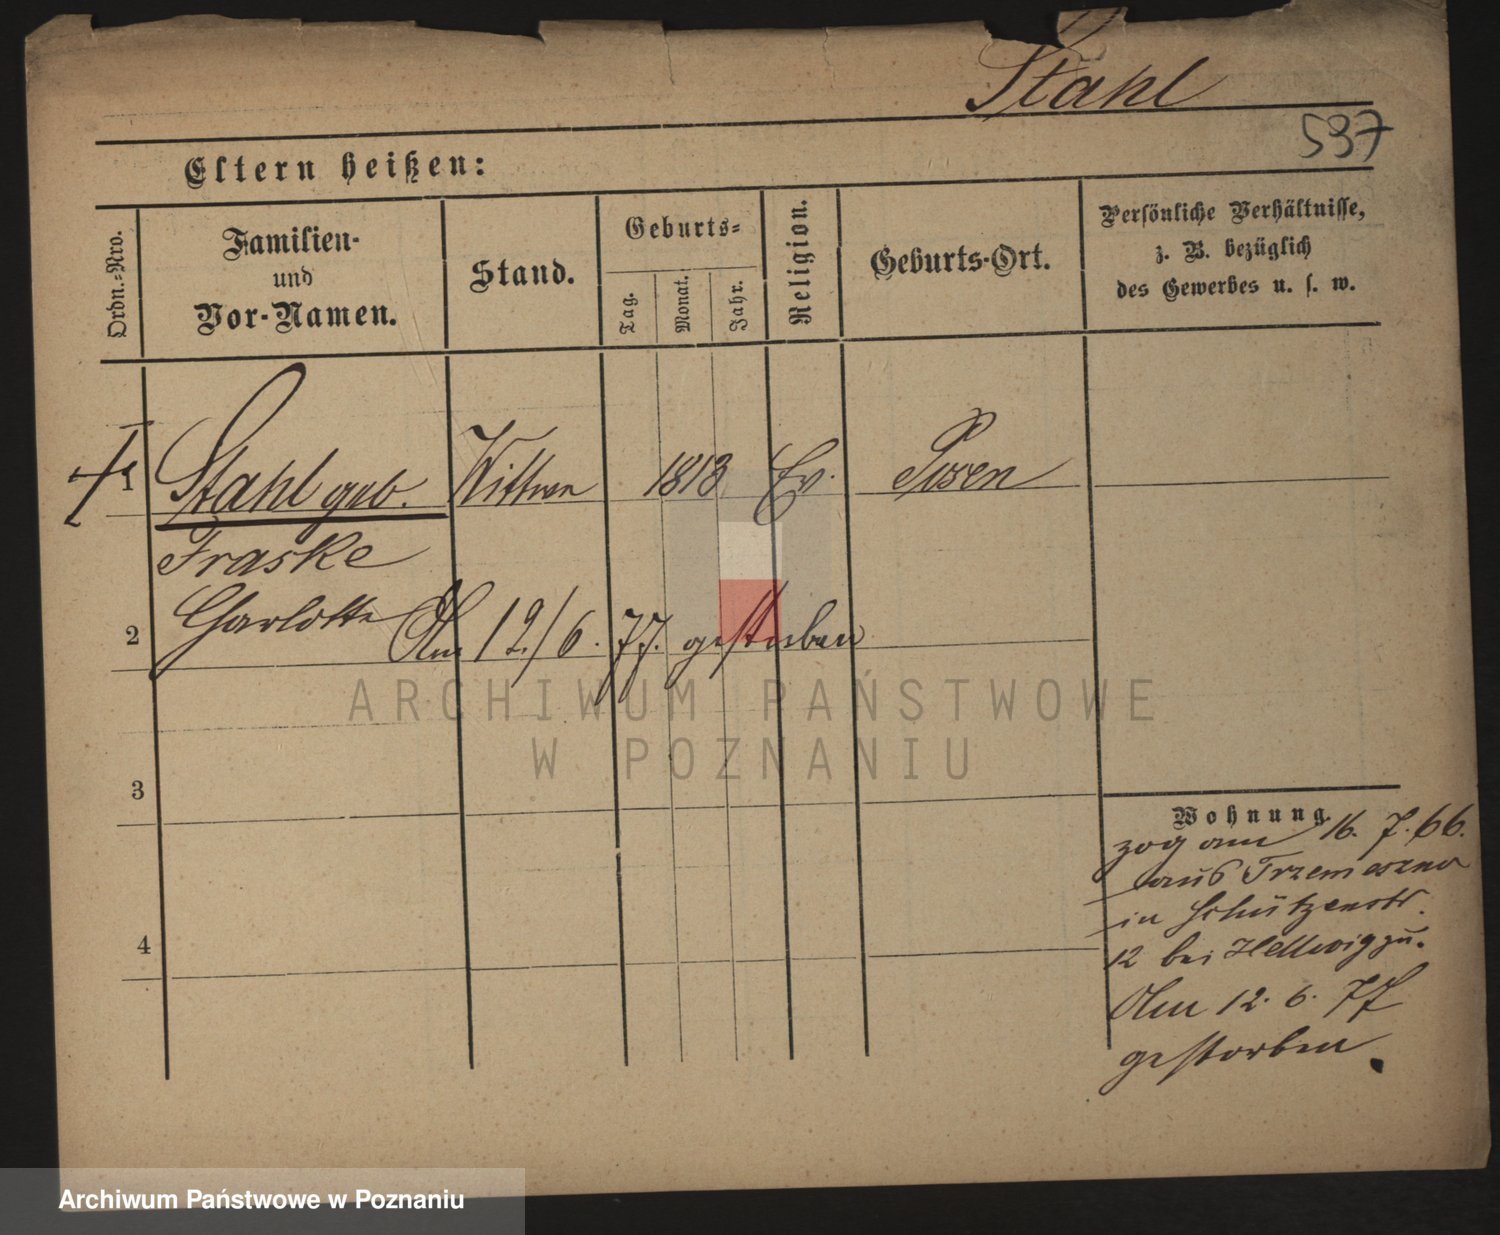 Stahl
537
Eltern heißen:
Ordn.-Nro.
Familien-
und
Vor-Namen.
Stand.
Geburts-
Tag.
Monat.
Jahr.
Religion.
Geburts-Ort.
Persönliche Verhältnisse,
z. B. bezüglich
des Gewerbes u. s. w.
1 Stahl geb. Wittwe 1813 Ev. Posen
Fraske
2 Charlotte Am 12/6. 77. gestorben
ARCHIWUM PAŃSTWOWE
W POZNANIU
3
Wohnung.
zog am 16. 7. 66.
aus Trzemeszno
in Schützenstr.
4
12 bei Hellwig zu.
Am 12. 6. 77
gestorben.
Archiwum Państwowe w Poznaniu